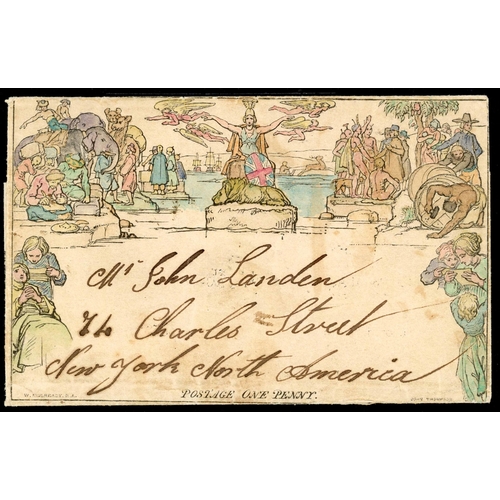 Mr John Landen
74 Charles Street
New York North America
POSTAGE ONE PENNY.
W. MULREADY, R.A.
JOHN THOMPSON